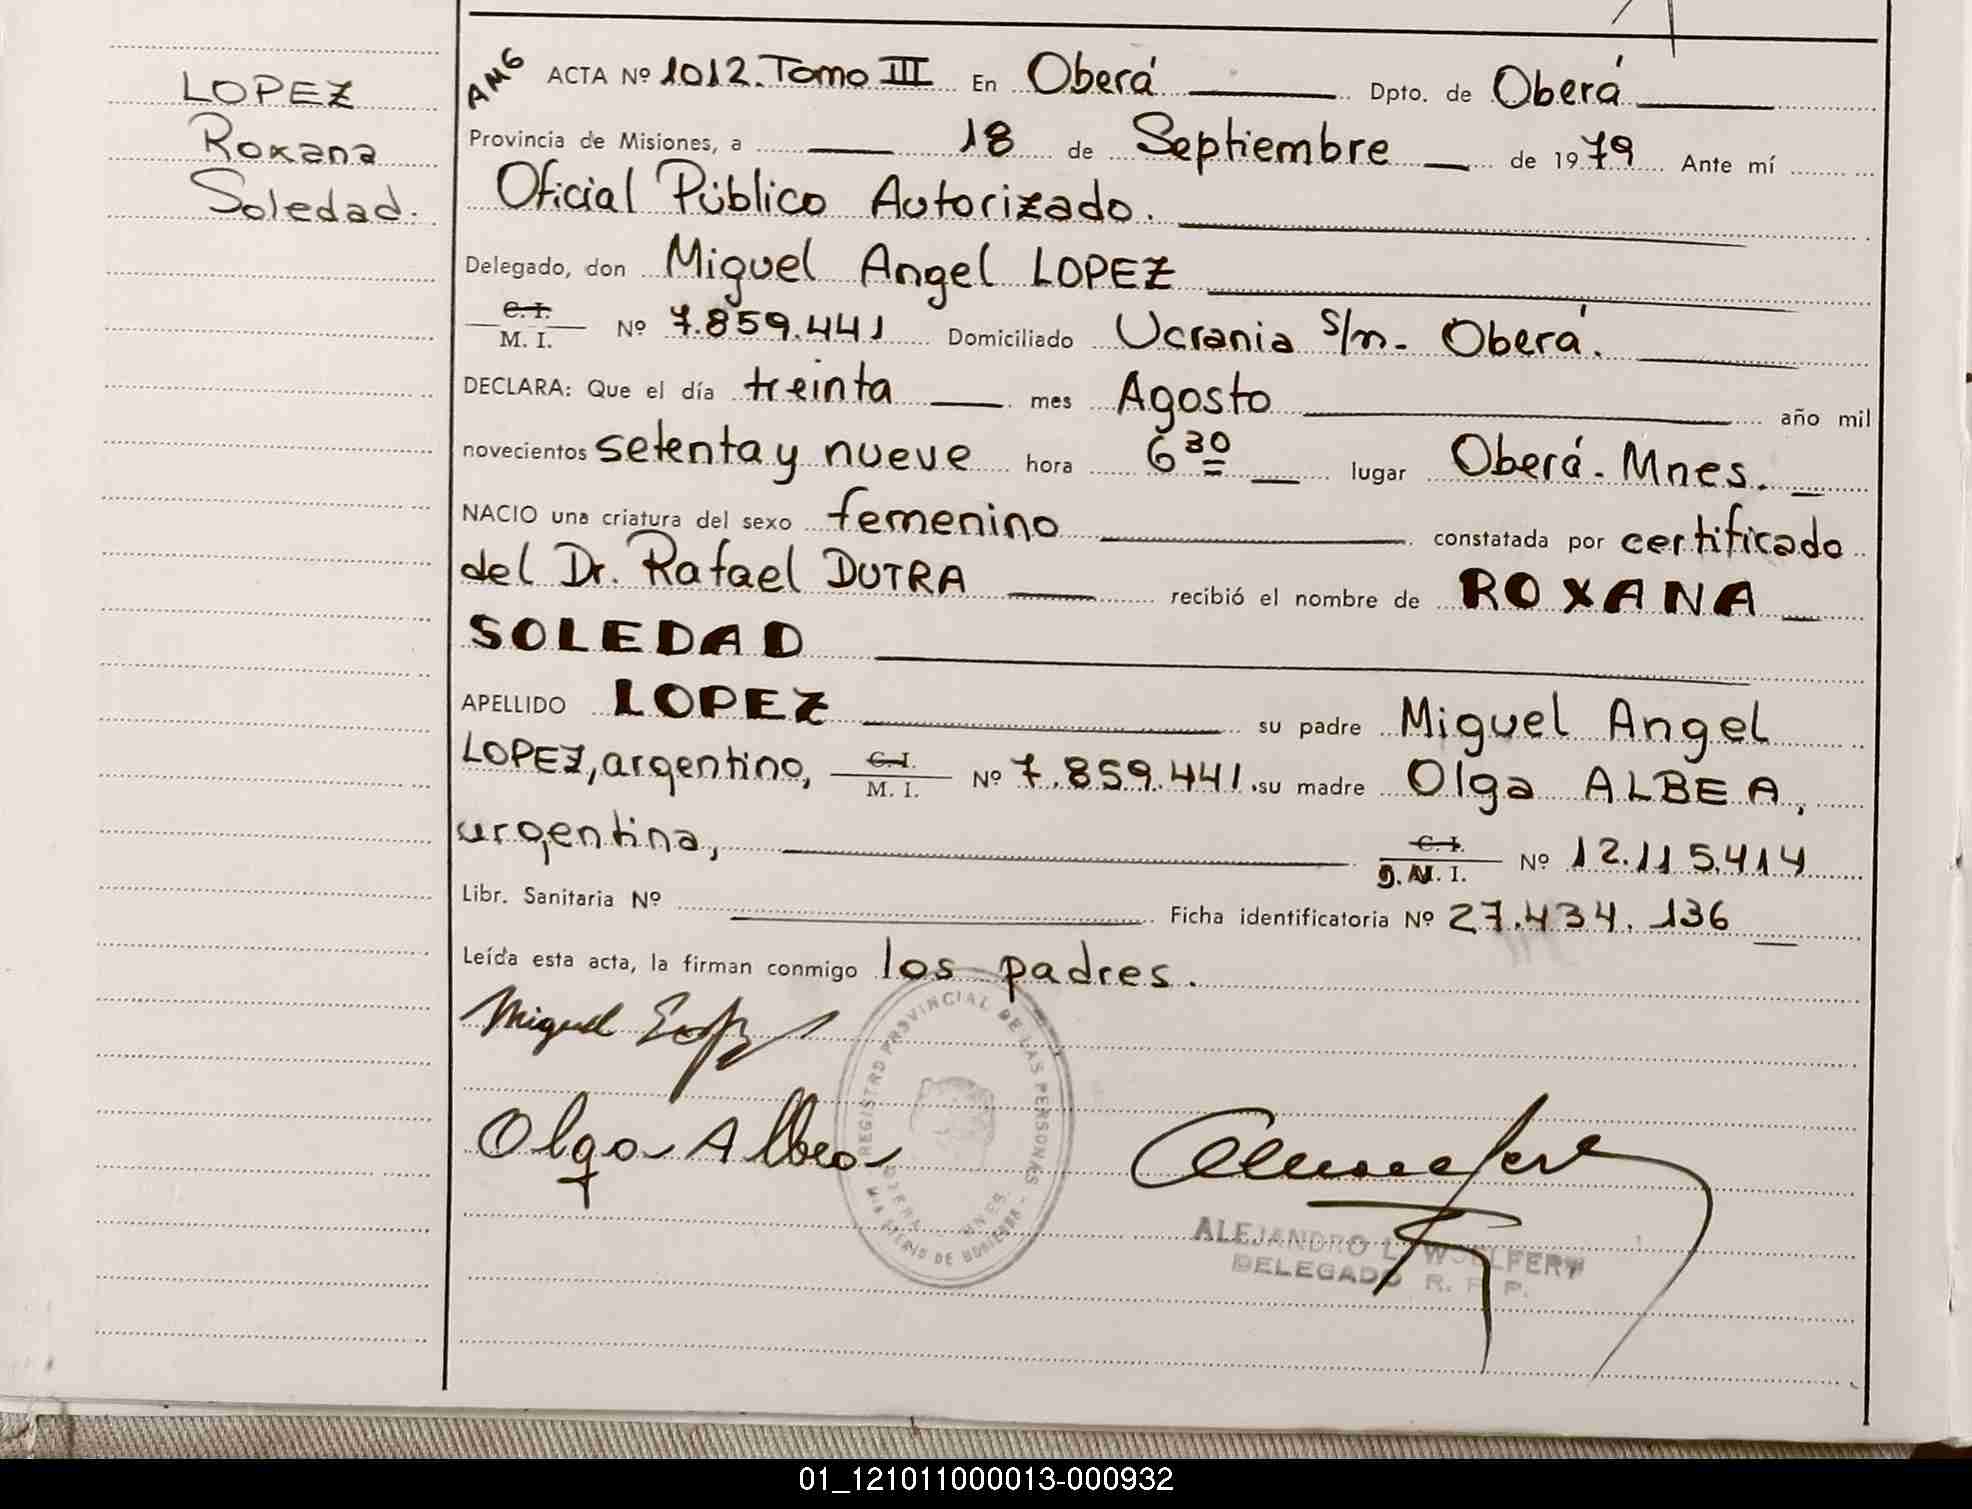 LOPEZ
Roxana
Soledad.
AMG
ACTA Nº 1012. Tomo III En Oberá Dpto. de Oberá
Provincia de Misiones, a 18 de Septiembre de 1979 Ante mí
Oficial Público Autorizado.
Delegado, don Miguel Angel LOPEZ
C. I.
M. I. Nº 7.859.441 Domiciliado Ucrania s/n. Oberá.
DECLARA: Que el día treinta mes Agosto año mil
novecientos setenta y nueve hora 6 30 lugar Oberá - Mnes.
NACIO una criatura del sexo femenino constatada por certificado
del Dr. Rafael DUTRA recibió el nombre de ROXANA
SOLEDAD
APELLIDO LOPEZ su padre Miguel Angel
LOPEZ, argentino, C. I. M. I. Nº 7.859.441. su madre Olga ALBEA,
argentina, C. I. D. N. I. Nº 12.115.414
Libr. Sanitaria Nº Ficha identificatoria Nº 27.434.136
Leída esta acta, la firman conmigo los padres.
Miguel
Olga Albea
REGISTRO PROVINCIAL DE LAS PERSONAS
MINISTERIO DE GOBIERNO
ALEJANDRO L. WOELFERT
DELEGADO R. P. P.
01_121011000013-000932